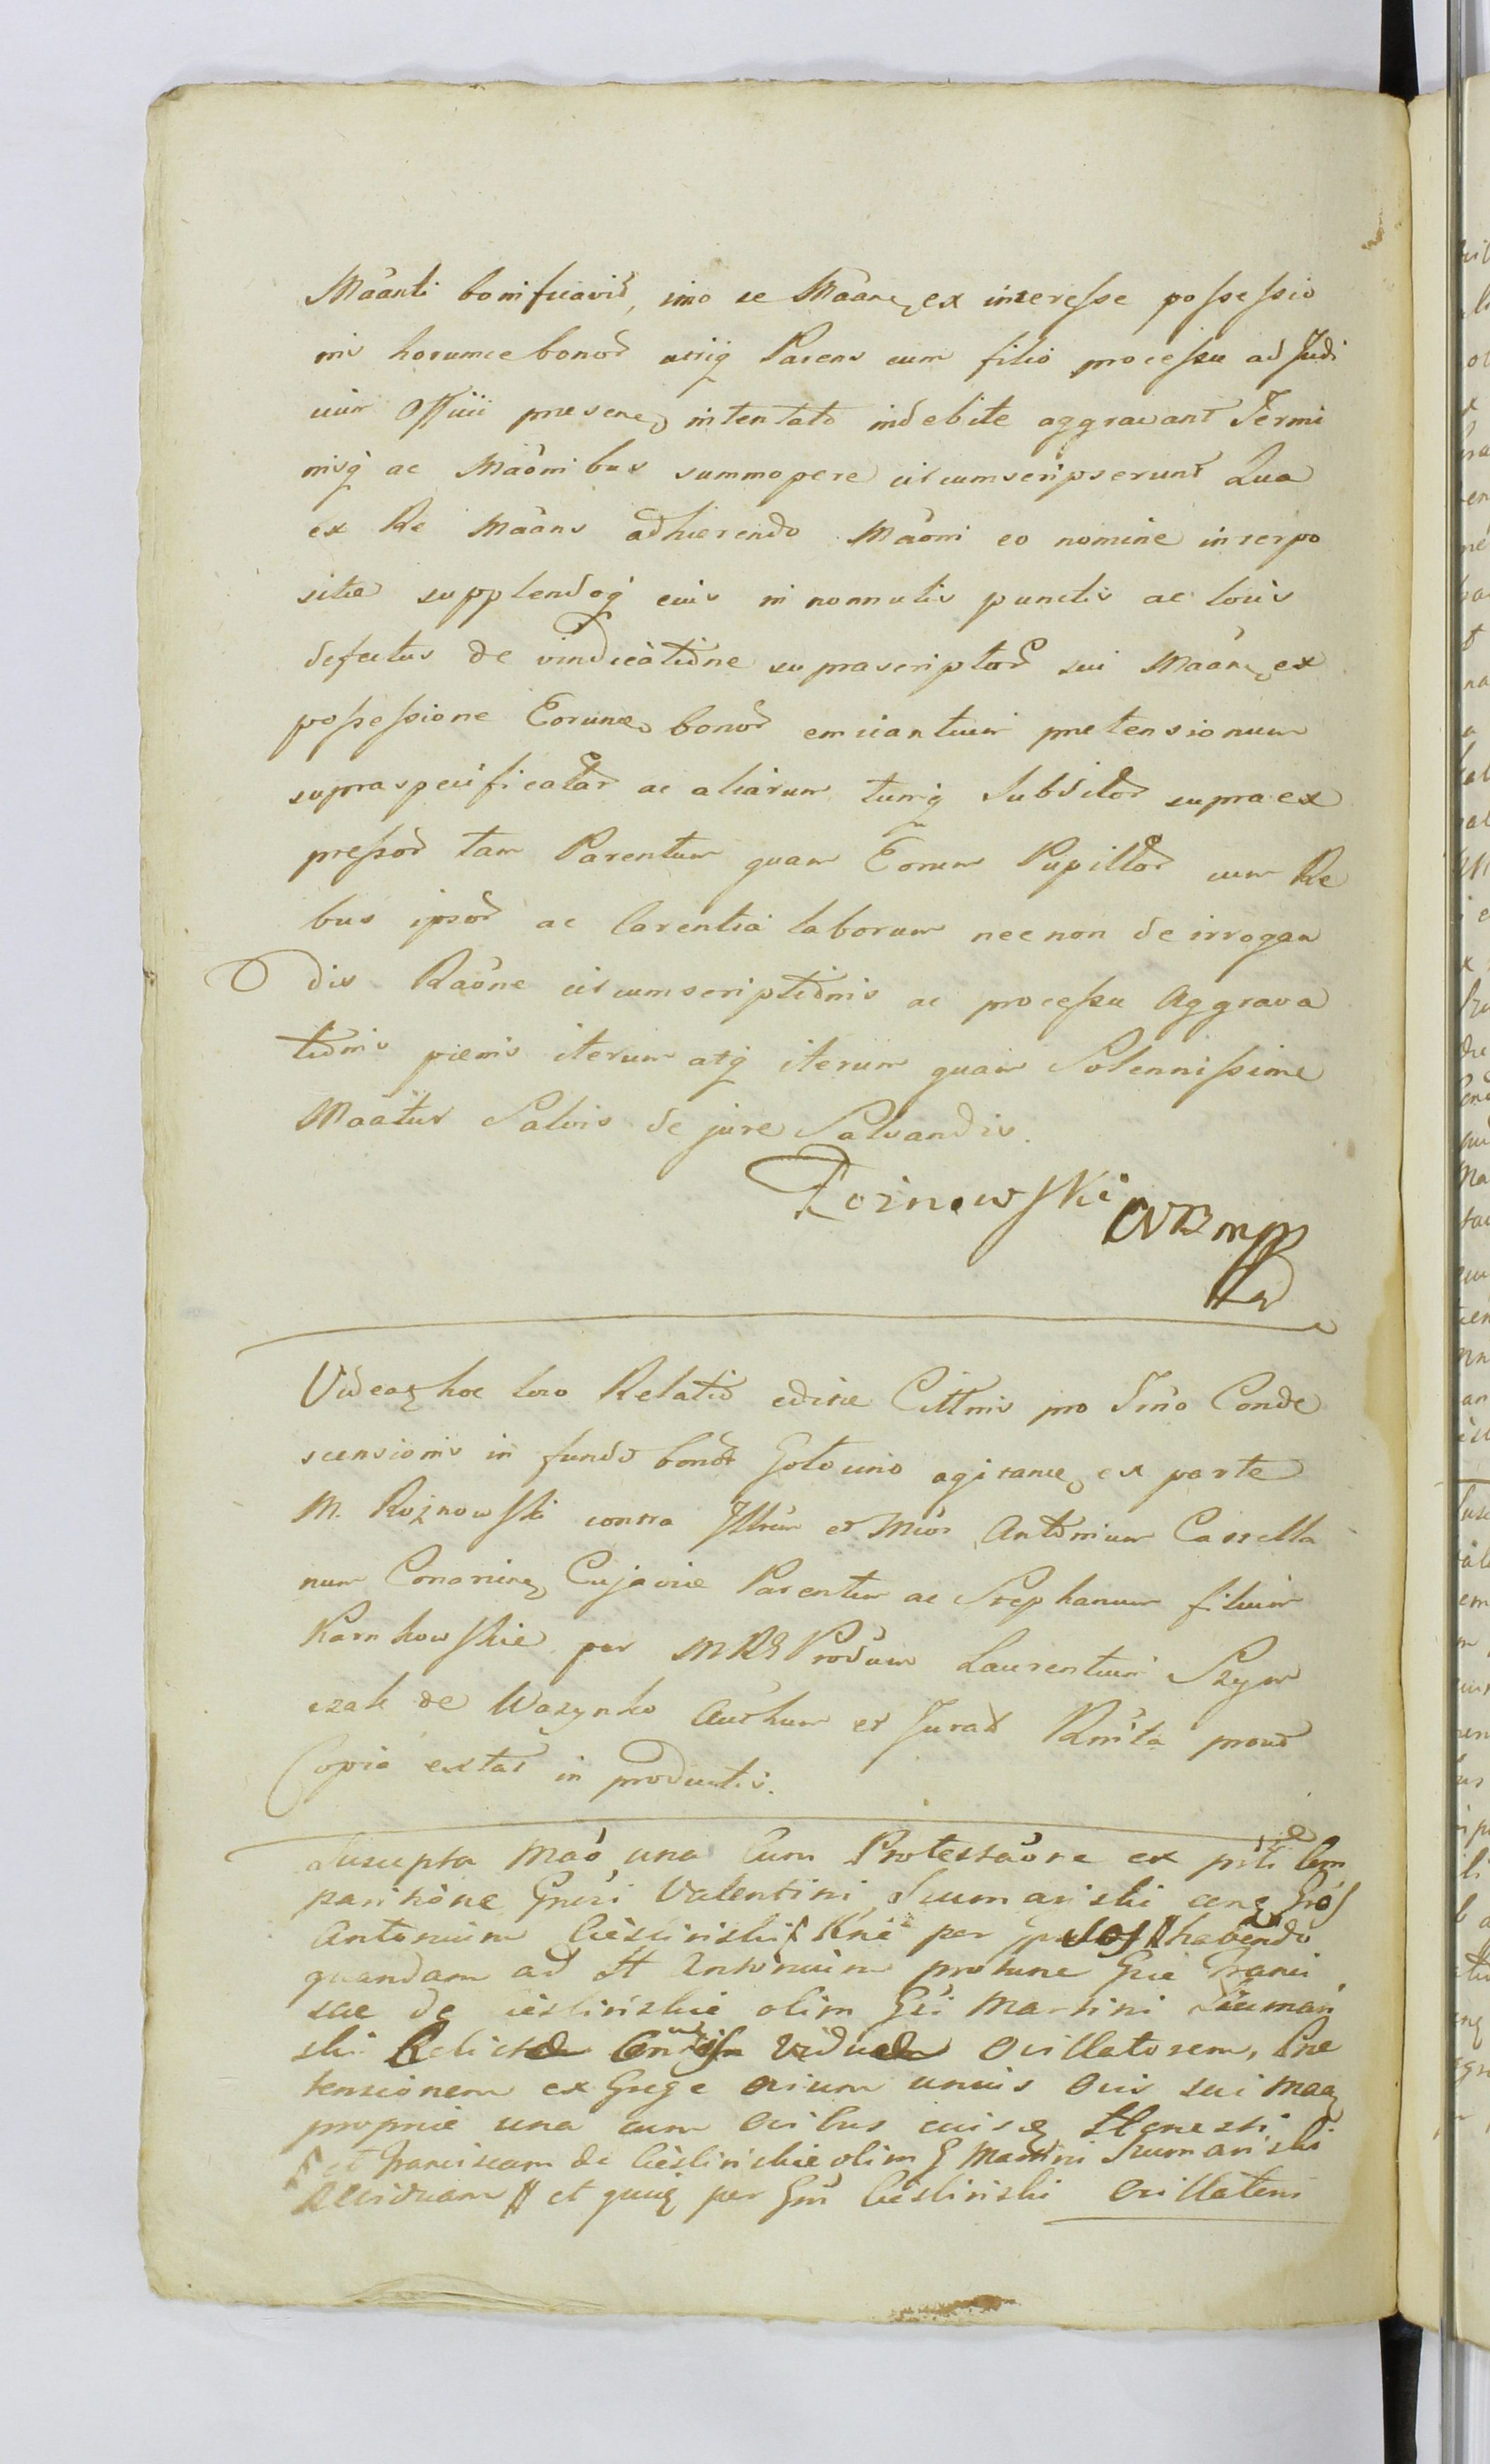 Mãanti bonificavit, imo se Mãane ex interesse possessio
nis horumce bonor utriq Parens cum filio processu ad Judi
cium Officii presenc intentato indebite aggravant Termi
nisq ac Mãonibus summopere circumscripserunt Qua
ex Re Mãans adhierendo Mãoni eo nomine interpo
sitæ supplendoq eius in nonnulis punctis ac locis
defectus de vindicatione suprascriptor sui Mãane ex
possessione Eorunce bonor emicantium pretensionum
supraspecificatar ac aliarum tumq Subditor supra ex
pressor tam Parentum quam Eorum Pupillor cum Re
bus ipsor ac Carentia laborum necnon de irrogan
dis Raone circumscriptionis ac processu Aggrava
tionis pœnis iterum atq iterum quam Solennissime
Mãatur Salvis de jure Salvandis.
Roznowski mpp
Videaz hoc loco Relatio edite Cittnis pro Tino Conde
scensionis in fundo bonor Gotowino agitanc ex parte
M. Rożnowski contra Illrum et Mcos Antonium Castella
num Conariens Cujaviæ Parentem ac Stephanum filium
Karnkowskie per MRG Produm Laurentium Szym
czak de Waszynko Authum et Jurat Rnita prout
Copia extat in productis.
Suscepta Mão una Cum Protestaõne ex psti Com
paritiõne Gnrsi Valentini Szumanski ceng Gros
Antonium Cieslinski Kne per ipsos habendo
quandam ad H Antonium protunc Gse Franci
scae de Cieslinskie olim Gsi Martini Szuman
ski Relictæ viduæ Ovillatorem, Pre
tensionem ex Grege ovium unius Ovis sui Maaz
propriæ una cum Ovibus cuisq Honesti
et Franciscam de Cieslinskie olim G Martini Szumanski
viduam et quuiq per Gm Cieslinski Ovillatem